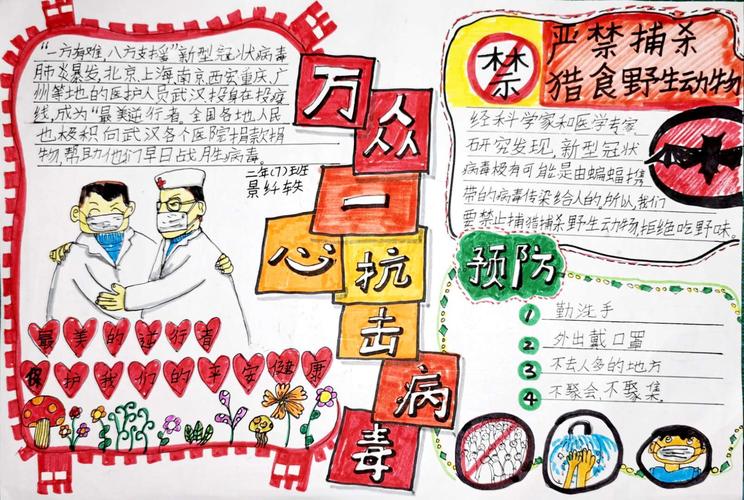 "一方有难,八方支援"新型冠状病毒
肺炎暴发,北京上海南京西安重庆,广
州等地的医护人员武汉,投身在投疫
线,成为"最美逆行者,全国各地人民
也极积向武汉各个医院捐款捐
物,帮助他们早日战胜病毒。
二年(7)班
景纤轶
最美的逆行者
保护我们的平安健康
万众
一
心抗
击
病
毒
禁
严禁捕杀
猎食野生动物
经科学家和医学专家
研究发现,新型冠状
病毒极有可能是由蝙蝠携
带的病毒传染给人的,所以,我们
要禁止捕猎捕杀野生动物,拒绝吃野味。
预防
1 勤洗手
2 外出戴口罩
3 不去人多的地方
4 不聚会,不聚集。